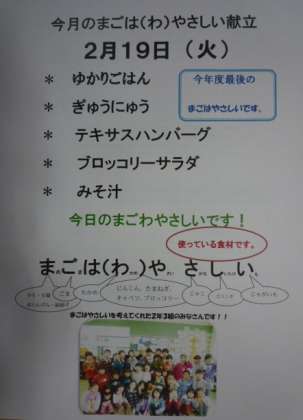 今月のまごは(わ)やさしい献立
2月19日(火)
* ゆかりごはん
今年度最後の
まごはやさしいです。
* ぎゅうにゅう
* テキサスハンバーグ
* ブロッコリーサラダ
* みそ汁
今日のまごわやさしいです!
使っている食材です。
まごは(わ)やさしい
ごま
わかめ
にんじん、たまねぎ、
キャベツ、ブロッコリー
じゃこ
じゃがいも
まごはやさしいを考えてくれた2年3組のみなさんです!!